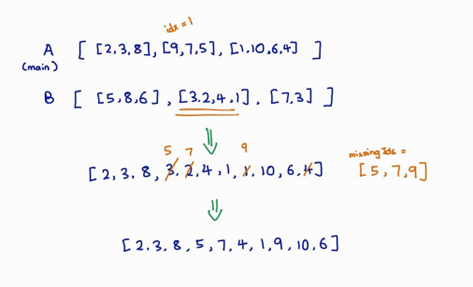 idx = 1
A [ [2,3,8], [9,7,5], [1,10,6,4] ]
(main)
B [ [5,8,6] , [3,2,4,1] , [7,3] ]
5 7 9
[ 2, 3, 8, 3, 2, 4, 1, 1, 10, 6, 4 ]
missingIds =
[5, 7, 9]
[ 2, 3, 8, 5, 7, 4, 1, 9, 10, 6 ]